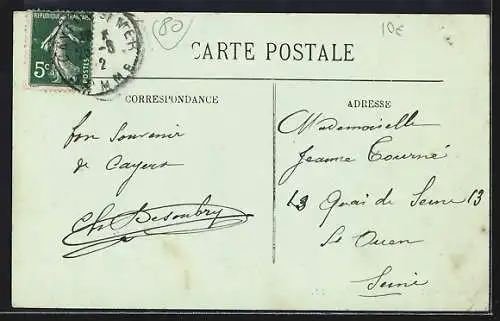 REPUBLIQUE FRANÇAISE
5c
POSTES
S/MER
80
10€
CARTE POSTALE
CORRESPONDANCE
ADRESSE
Bon Souvenir
de Cayeux
Ch Desoubry
Mademoiselle
Jeanne Tourné
13 Quai de Seine 13
St Ouen
Seine